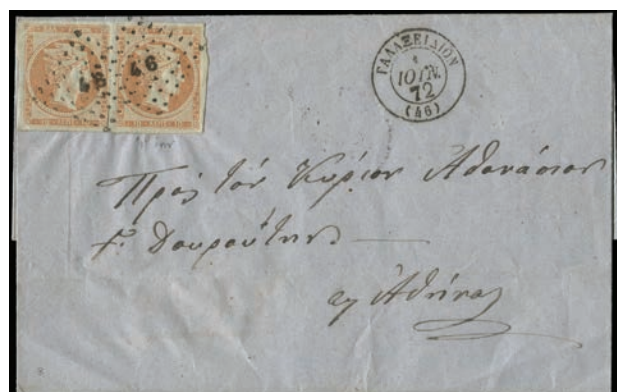 46 46
ΓΑΛΑΞΕΙΔΙΟΝ
ΙΟΥΝ.
72
(46)
Πρὸς τὸν Κύριον Ἀθανάσιον
Γ. Δουρούτην
εἰς Ἀθήνας